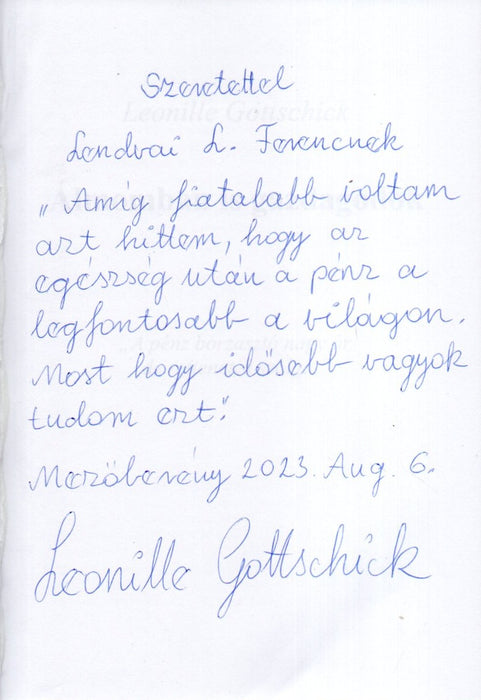 Szeretettel
Lendvai L. Ferencnek
„Amíg fiatalabb voltam
azt hittem, hogy az
egészség után a pénz a
legfontosabb a világon.
Most hogy idősebb vagyok
tudom ezt."
Mezőberény 2023. Aug. 6.
Leonille Gottschick